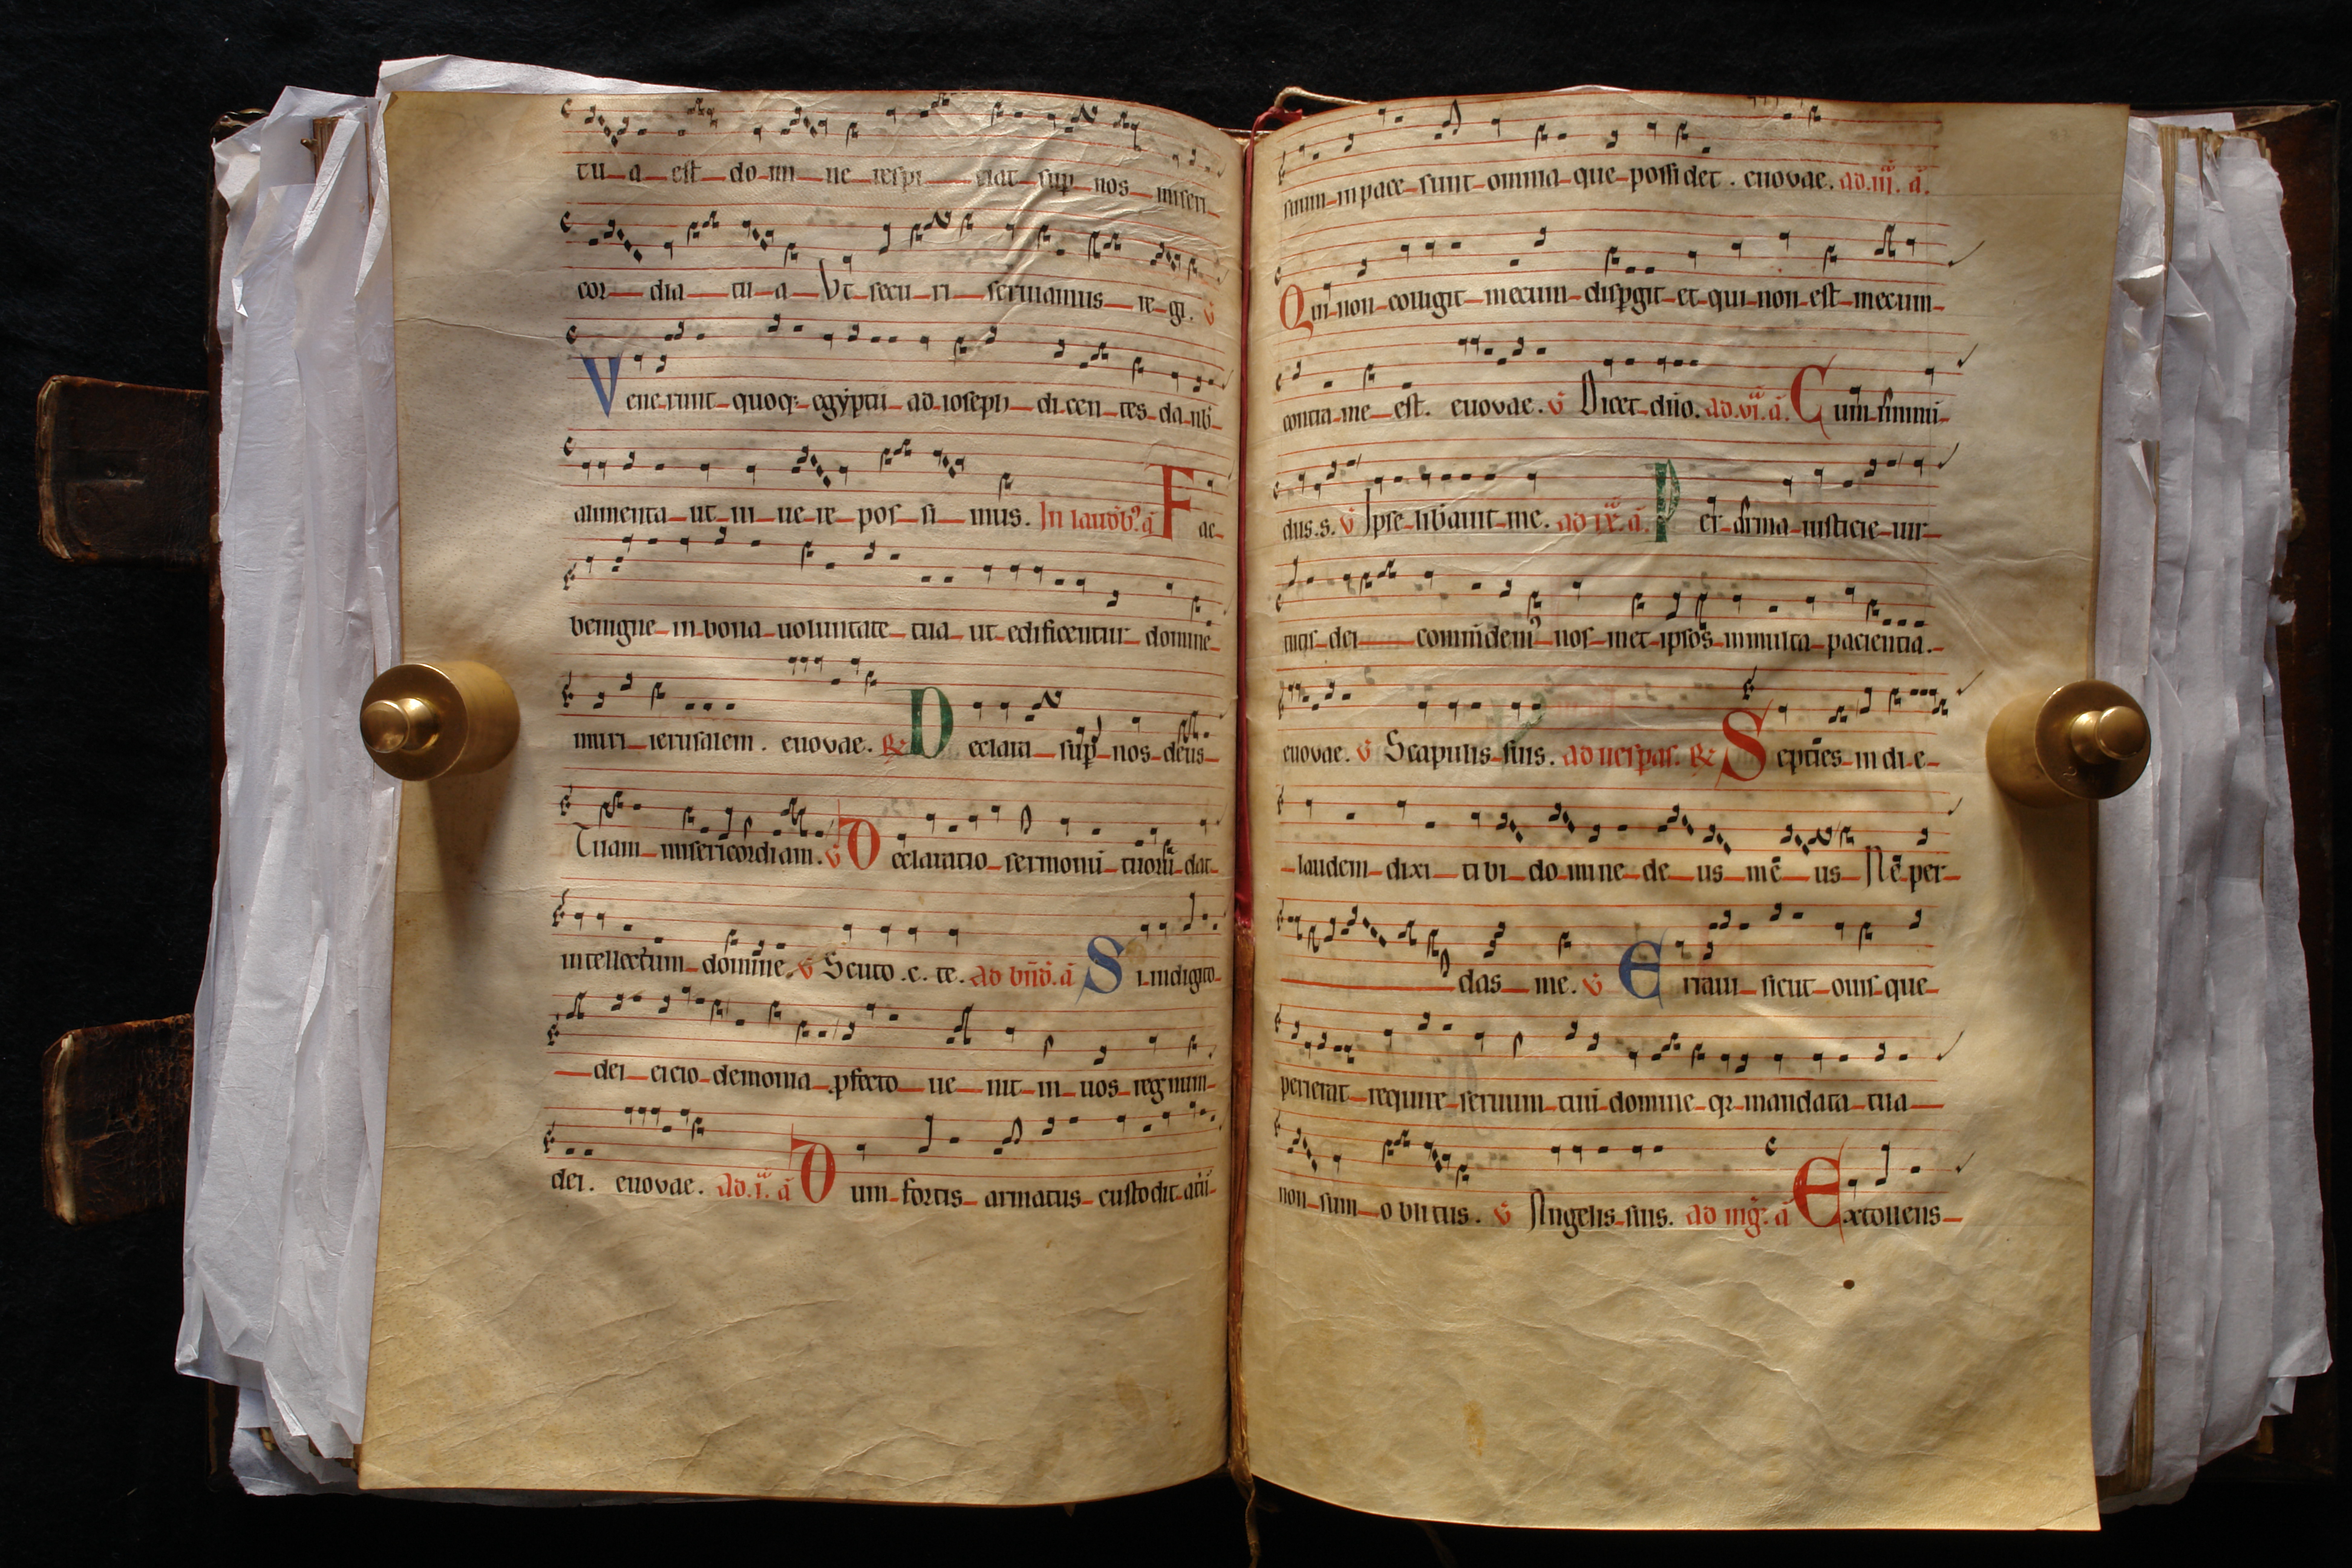 tu-a-est-do-mi-ne-respi-ciat-sup-nos-miseri-
cor-dia-tu-a-Vt-secu-ri-seruiamus-te-gi. v
Vene-runt-quoq-egyptii-ad-ioseph-di-cen-tes-da-nb-
alimenta-ut-ui-ue-re-pos-si-mus. In laudb. a Fac-
benigne-in-bona-uoluntate-tua-ut-edificentur-domine-
muri-ierusalem. euovae. R Declara-sup-nos-deus-
Tuam-misericordiam. v Declaratio-sermonu-tuoru-dat-
intellectum-domine. v Scuto.c.te. ad bnd. a Si-indigito-
-dei-eicio-demonia-pfecto-ue-nit-in-uos-regnum-
dei. euovae. ad.i. a Dum-fortis-armatus-custodit-atiu-
suum-inpace-sunt-omnia-que-possidet. euovae. ad.iii. a.
Qui-non-colligit-mecum-dispgit-et-qui-non-est-mecum-
contra-me-est. euovae. v Dicet-dno. ad.vi. a. Cum-immu-
dus.s. v Ipse-libauit-me. ad ix. a. Per-arma-iusticie-uir-
tutis-dei-comudem-nos-met-ipsos-inmulta-paciencia.-
euovae. v Scapulis-suis. ad uespas. R Septies-in di-e-
-laudem-dixi-tibi-do-mine-de-us-me-us-Ne-per-
-das-me. v Erraui-sicut-ouis-que-
perierat-require-seruum-tuu-domine-qr-mandata-tua-
non-sum-oblitus. v Angelis-suis. ad mg. a Extollens-